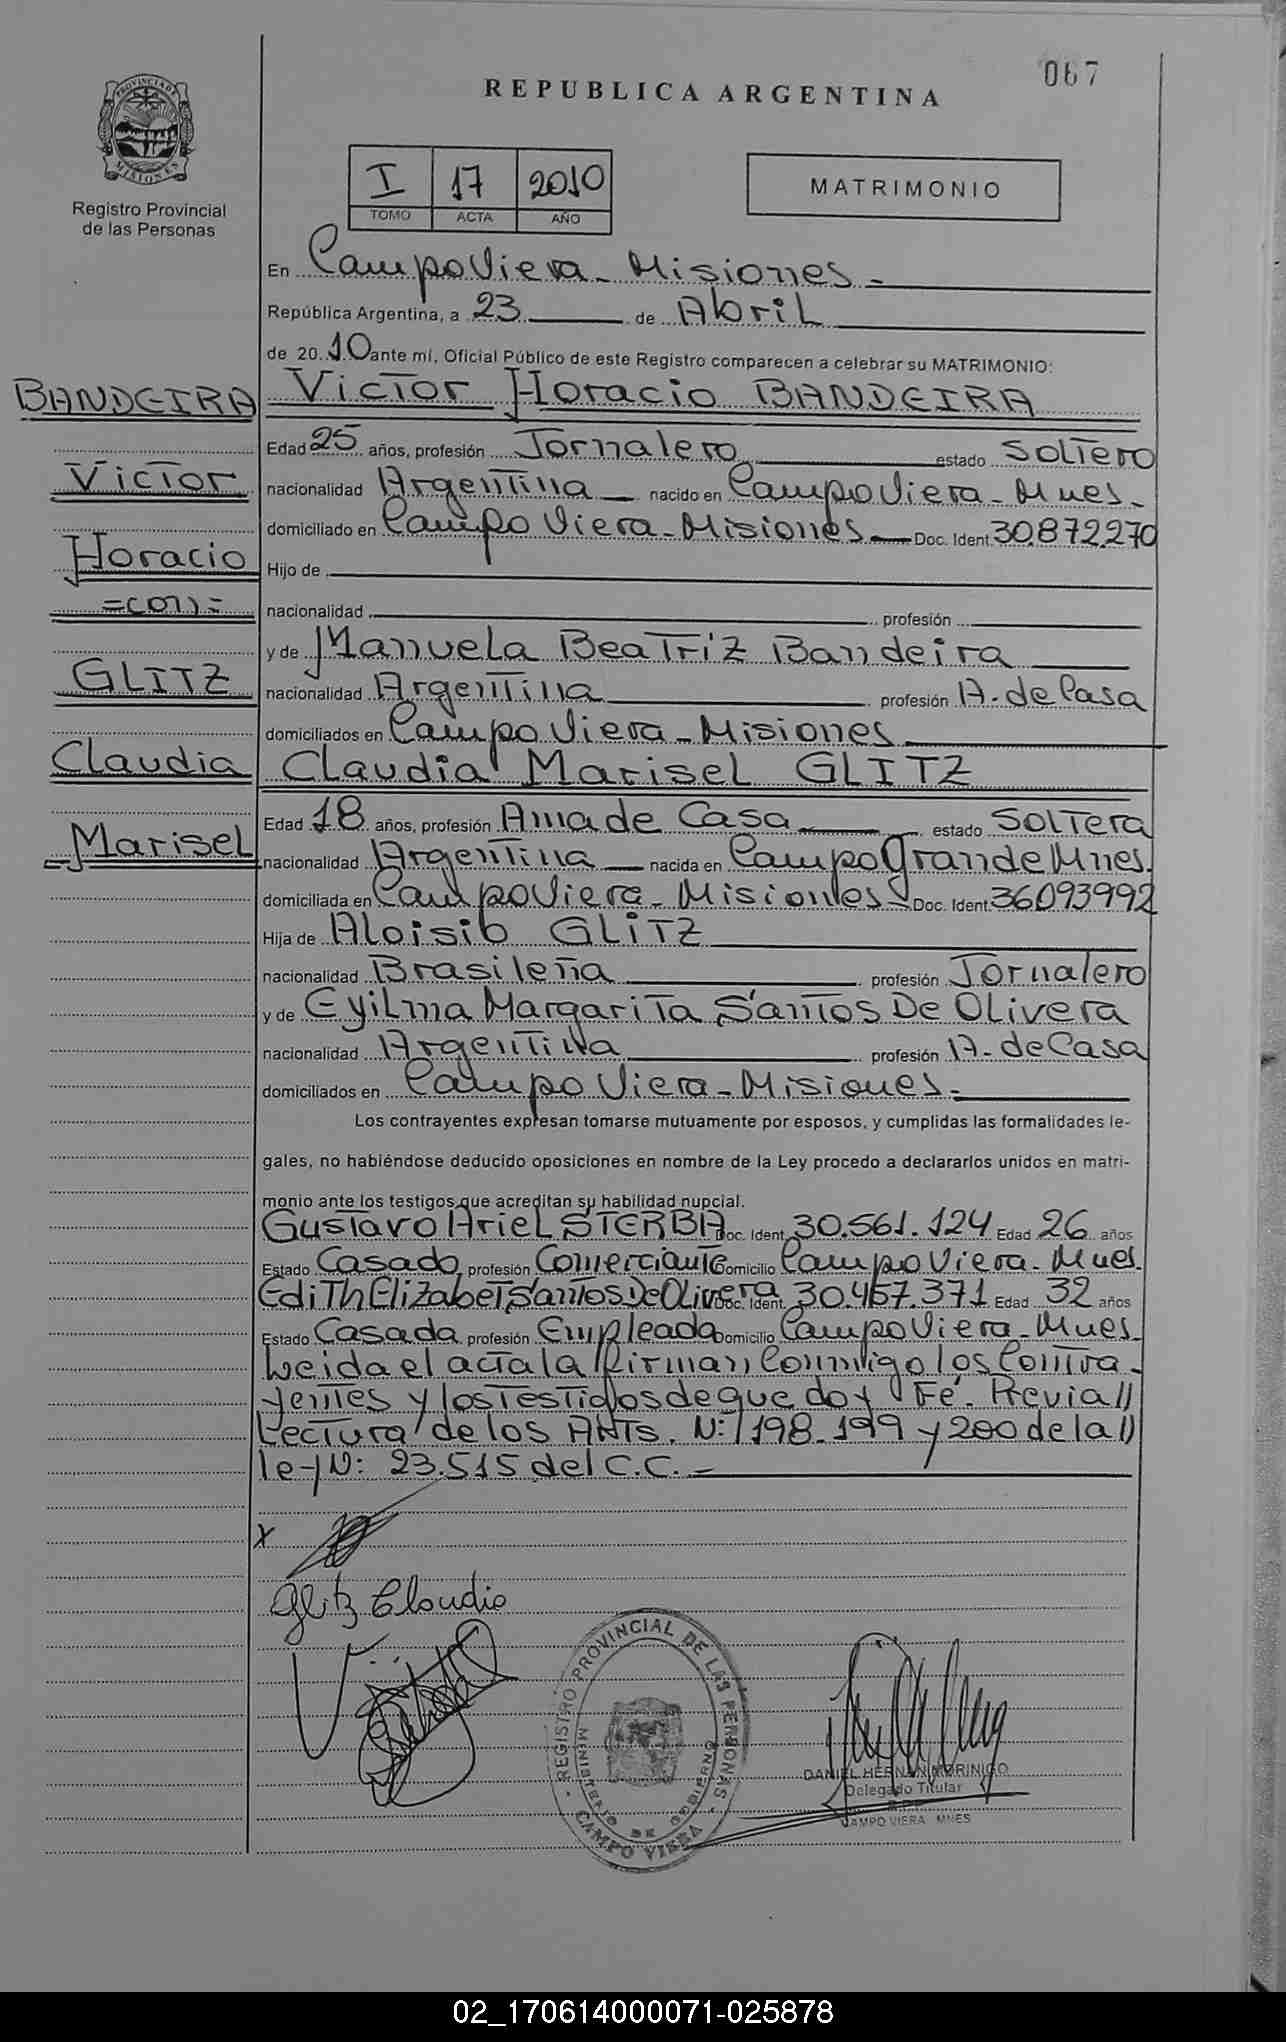 067
REPUBLICA ARGENTINA
PROVINCIA DE MISIONES
Registro Provincial
de las Personas
I 17 2010
TOMO ACTA AÑO
MATRIMONIO
En Campo Viera - Misiones -
República Argentina, a 23 de Abril
de 2010 ante mí, Oficial Público de este Registro comparecen a celebrar su MATRIMONIO:
BANDEIRA Victor Horacio BANDEIRA
Edad 25 años, profesión Jornalero estado Soltero
Victor nacionalidad Argentina nacido en Campo Viera - Mnes -
domiciliado en Campo Viera - Misiones Doc. Ident. 30.872.270
Horacio Hijo de
=con= nacionalidad profesión
y de Manuela Beatriz Bandeira
GLITZ nacionalidad Argentina profesión A. de Casa
domiciliados en Campo Viera - Misiones
Claudia Claudia Marisel GLITZ
Edad 18 años, profesión Ama de Casa estado Soltera
Marisel nacionalidad Argentina nacida en Campo Grande Mnes.
domiciliada en Campo Viera - Misiones Doc. Ident. 36093992
Hija de Aloisio GLITZ
nacionalidad Brasileña profesión Jornalero
y de Eyilma Margarita Santos De Olivera
nacionalidad Argentina profesión A. de Casa
domiciliados en Campo Viera - Misiones -
Los contrayentes expresan tomarse mutuamente por esposos, y cumplidas las formalidades le-
gales, no habiéndose deducido oposiciones en nombre de la Ley procedo a declararlos unidos en matri-
monio ante los testigos que acreditan su habilidad nupcial.
Gustavo Ariel STERBA Doc. Ident. 30.561.124 Edad 26 años
Estado Casado profesión Comerciante Domicilio Campo Viera - Mnes.
Edith Elizabet Santos De Olivera Doc. Ident. 30.457.371 Edad 32 años
Estado Casada profesión Empleada Domicilio Campo Viera - Mnes
Leida el acta la firman Conmigo los Contra-
yentes y los Testigos de que doy Fé. Previa //
Lectura de los ANTS. N: 198. 199 y 200 de la //
ley N: 23.515 del C.C. -
X
Glitz Claudia
REGISTRO PROVINCIAL DE LAS PERSONAS
MINISTERIO DE GOBIERNO
CAMPO VIERA
DANIEL HERNAN MORINIGO
Delegado Titular
CAMPO VIERA MNES
02_170614000071-025878